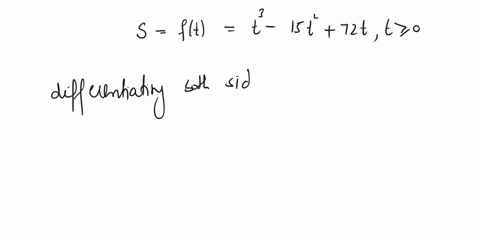 S = f(t) = t³ - 15t² + 72t, t ≥ 0
differentiating both sid